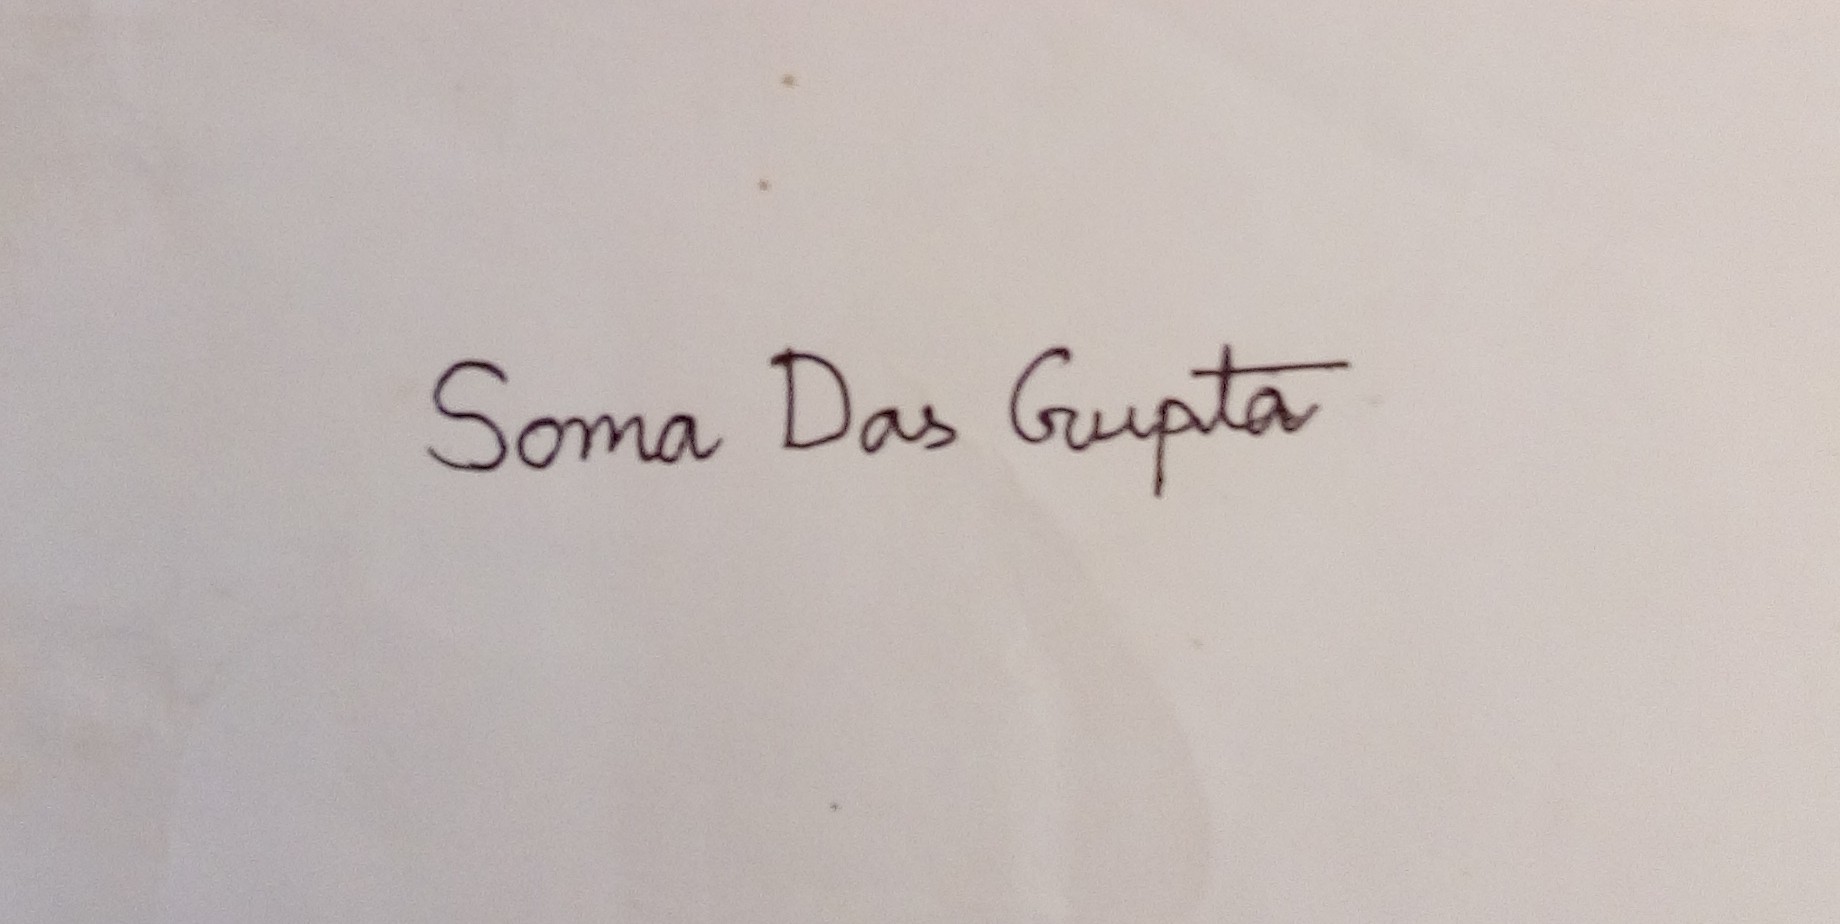 Soma Das Gupta